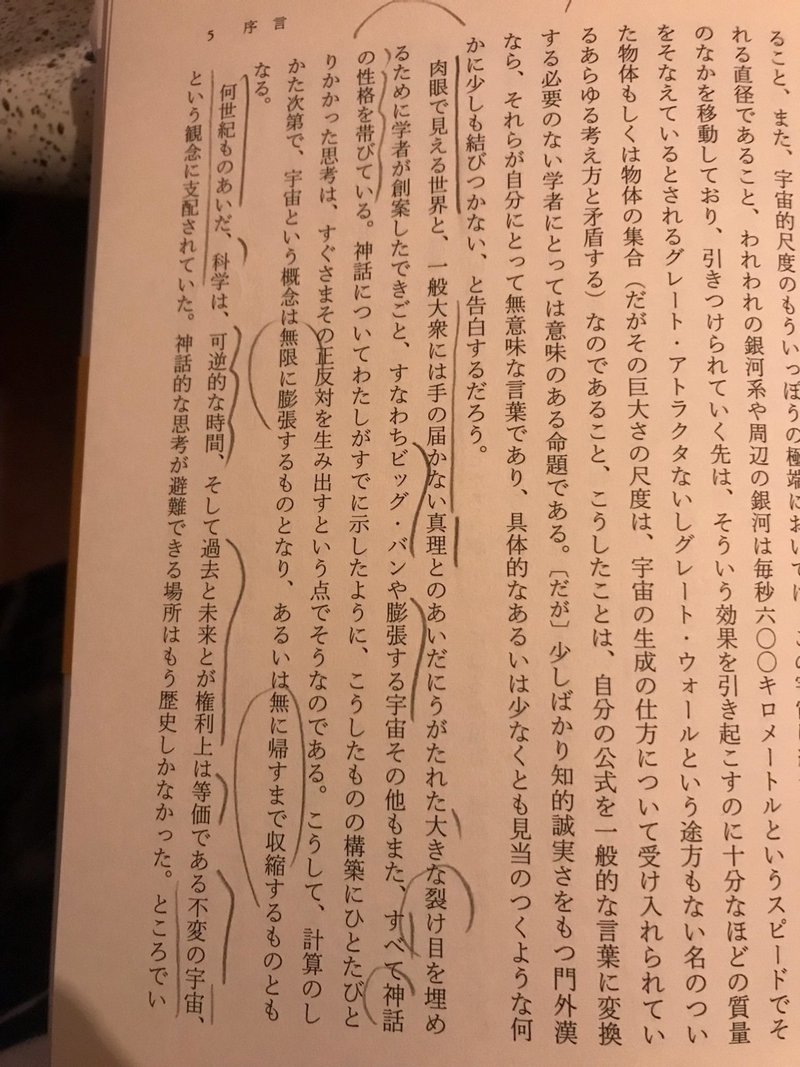 ること、また、宇宙的尺度のもういっぽうの極端において
れる直径であること、われわれの銀河系や周辺の銀河は毎秒六〇〇キロメートルというスピードでそ
のなかを移動しており、引きつけられていく先は、そういう効果を引き起こすのに十分なほどの質量
をそなえているとされるグレート・アトラクタないしグレート・ウォールという途方もない名のつい
た物体もしくは物体の集合（だがその巨大さの尺度は、宇宙の生成の仕方について受け入れられてい
るあらゆる考え方と矛盾する）なのであること、こうしたことは、自分の公式を一般的な言葉に変換
する必要のない学者にとっては意味のある命題である。［だが］少しばかり知的誠実さをもつ門外漢
なら、それらが自分にとって無意味な言葉であり、具体的なあるいは少なくとも見当のつくような何
かに少しも結びつかない、と告白するだろう。
肉眼で見える世界と、一般大衆には手の届かない真理とのあいだにうがたれた大きな裂け目を埋め
るために学者が創案したできごと、すなわちビッグ・バンや膨張する宇宙その他もまた、すべて神話
の性格を帯びている。神話についてわたしがすでに示したように、こうしたものの構築にひとたびと
りかかった思考は、すぐさまその正反対を生み出すという点でそうなのである。こうして、計算のし
かた次第で、宇宙という概念は無限に膨張するものとなり、あるいは無に帰すまで収縮するものとも
なる。
何世紀ものあいだ、科学は、可逆的な時間、そして過去と未来とが権利上は等価である不変の宇宙、
という観念に支配されていた。神話的な思考が避難できる場所はもう歴史しかなかった。ところでい
5 序言